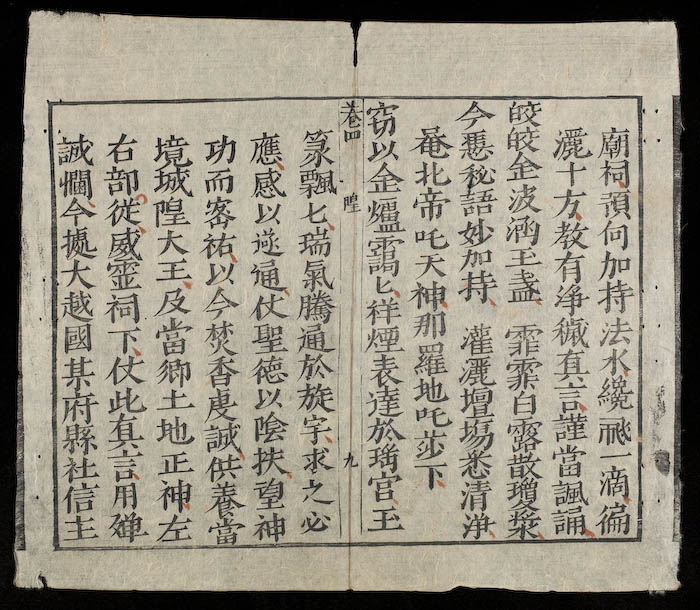 廟祠須何加持法水纔飛一滴徧
灑十方教有淨穢真言謹當諷誦
皎皎金波涵玉盞 霏霏白露散瓊漿
今慿秘語妙加持 灌灑壇塲悉清淨
菴北帝吒天神那羅地吒莎下
窃以金爐靄匕祥煙表達於瑤宮玉
卷四 隍 九
篆飄匕瑞氣騰通於旋宇求之必
應感以遂通仗聖德以陰扶望神
功而密祐以今焚香虔誠供養當
境城隍大王及當鄉土地正神左
右部從威靈祠下仗此真言用殫
誠悃今㨿大越國某府縣社信主